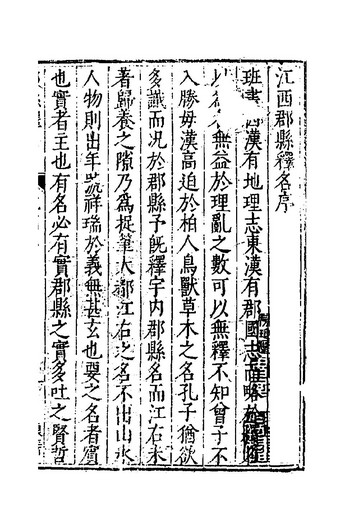 江西郡縣釋名序
班書西漢有地理志東漢有郡國志而略於
無益於理亂之數可以無釋不知曾子不
入勝毋漢高迫於柏人鳥獸草木之名孔子猶欲
多識而况於郡縣予既釋宇内郡縣名而江右未
著歸養之隙乃爲捉筆大都江右之名不出山水
人物則出年號祥瑞於義無甚玄也要之名者實
也實者主也有名必有實郡縣之實多吐之賢哲